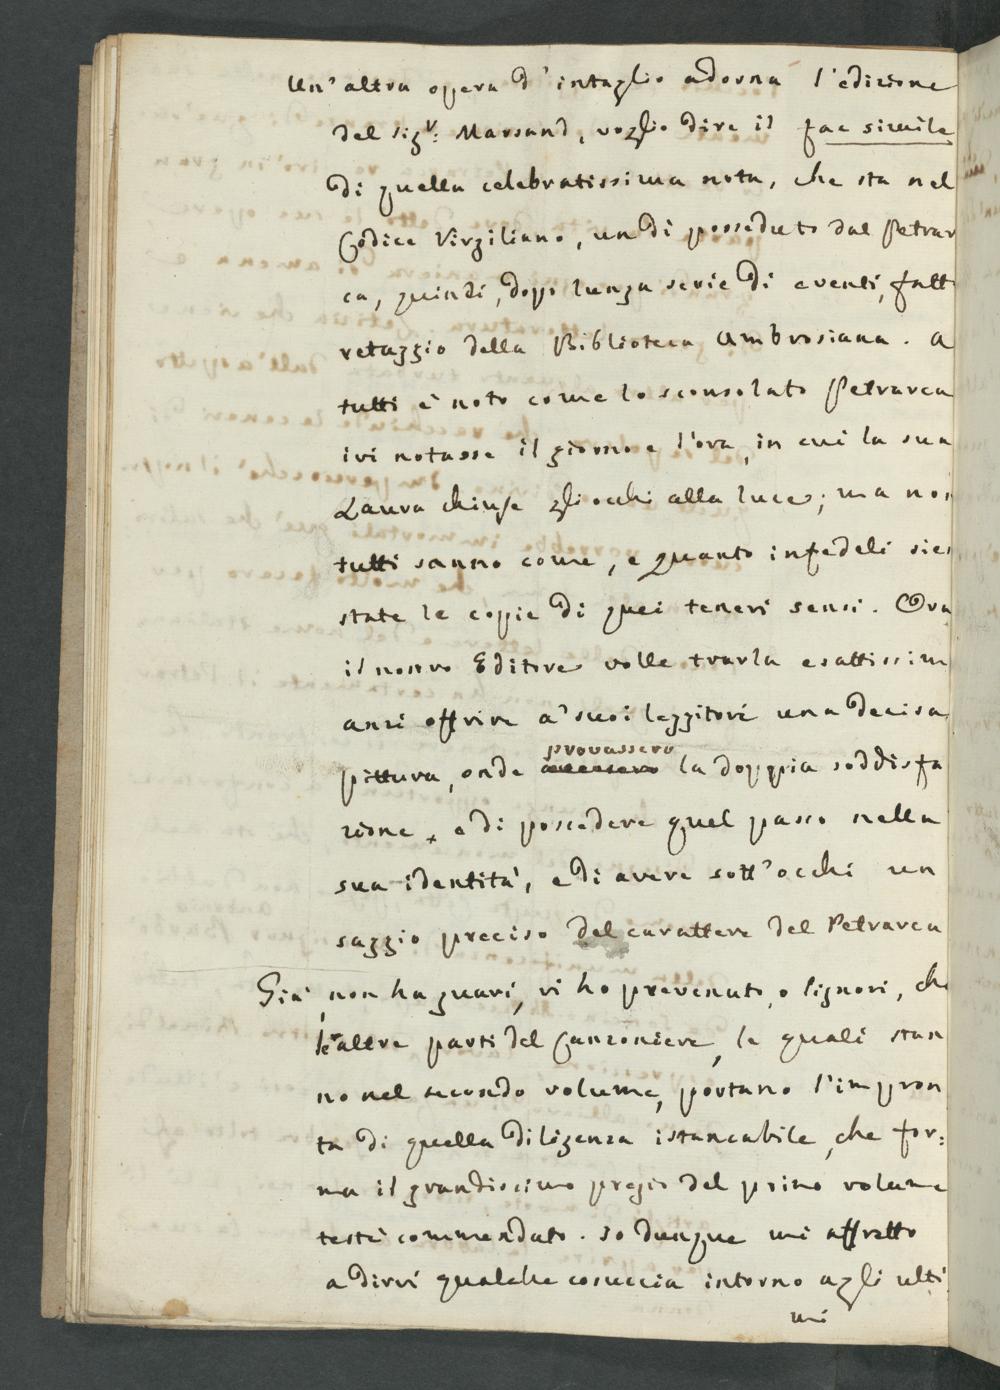 Un'altra opera d'intaglio adorna l'edizione
del Sigr: Marsand, voglio dire il fac simile
di quella celebratissima nota, che sta nel
Codice Virgiliano, un dì posseduto dal Petrar
ca, quindi, dopo lunga serie di eventi, fatt
retaggio della Biblioteca Ambrosiana. A
tutti è noto come lo sconsolato Petrarca
ivi notasse il giorno e l'ora, in cui la sua
Laura chiuse gli occhi alla luce; ma non
tutti sanno come, e quanto infedeli sien
state le copie di quei teneri sensi. Ora
il nostro Editore volle trarla esattissim
anzi offrire a' suoi leggitori una decisa
provassero
pittura, onde la doppia soddisfa
zione, e di possedere quel passo nella
sua identità, e di avere sott'occhi un
saggio preciso del carattere del Petrarca
Già non ha guari, vi ho prevenuto, o Signori, che
le altre parti del Canzoniere, le quali stan
no nel secondo volume, portano l'impron
ta di quella diligenza istancabile, che for:
ma il grandissimo pregio del primo volume
testè commendato. Io dunque mi affretto
a dirvi qualche cosuccia intorno agli ulti
mi